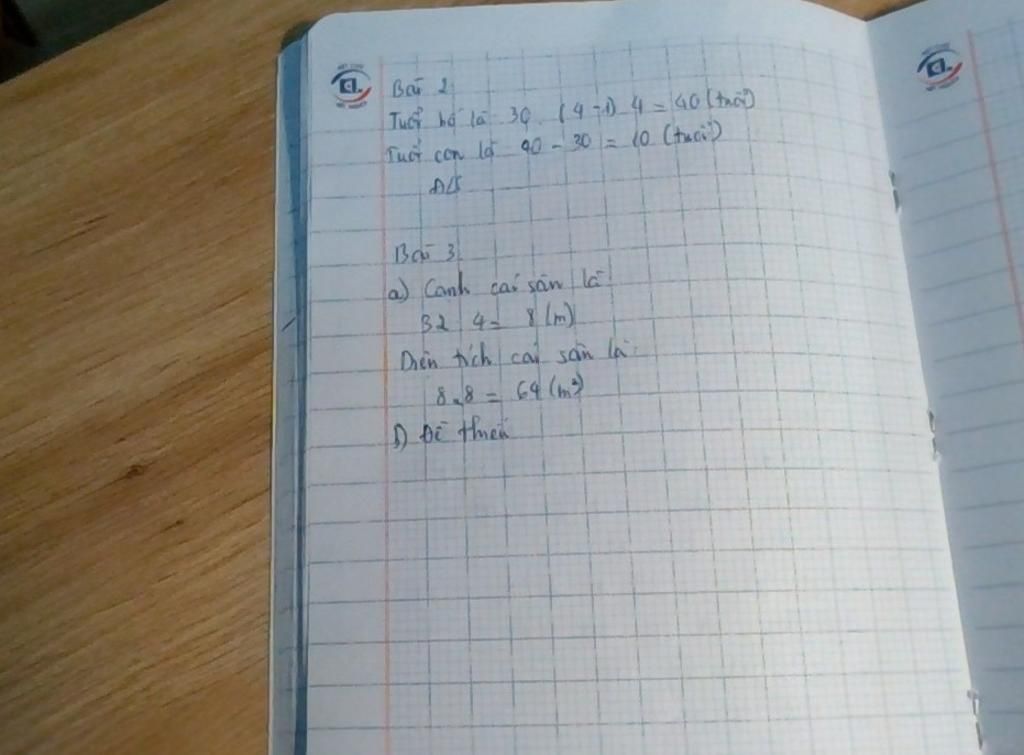 Bài 2
Tuổi bố là 30 (4-1) 4 = 40 (tuổi)
Tuổi con là 40 - 30 = 10 (tuổi)
Đ/S
Bài 3
a) Cạnh cái sân là:
32 4 = 8 (m)
Diện tích cái sân là:
8.8 = 64 (m²)
b) Đề thiếu